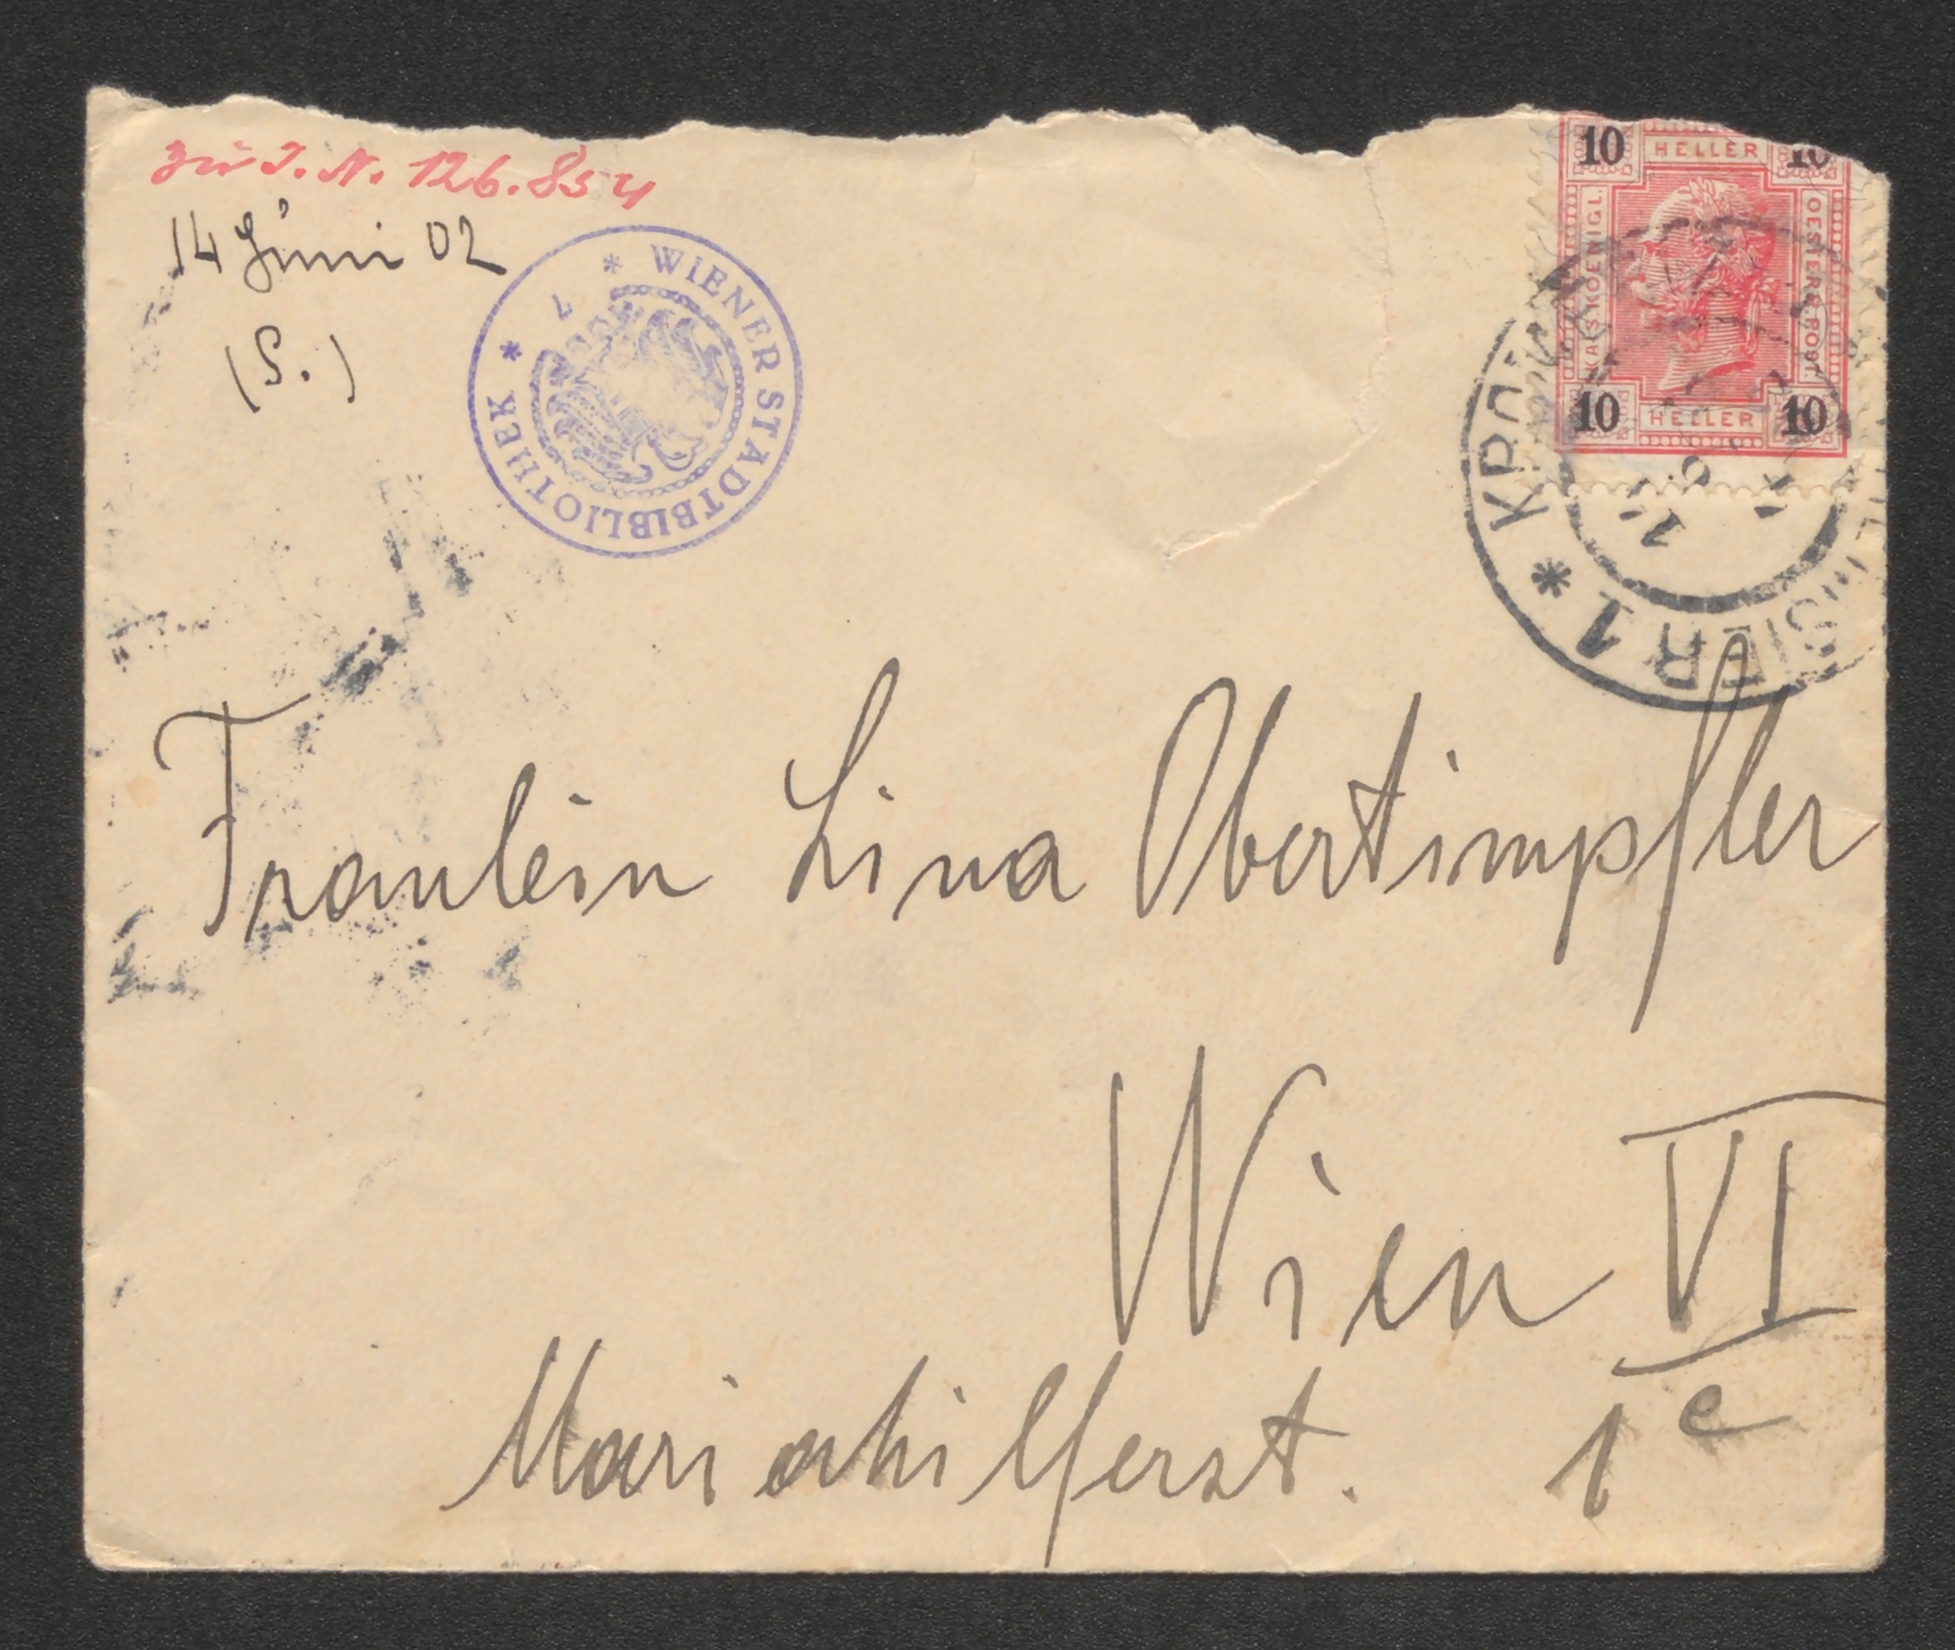 zu I. N. 126.854
14 Juni 02
(S.)
* WIENER STADTBIBLIOTHEK *
10 HELLER 10
KAIS. KOENIGL.
OESTERR. POST
10 HELLER 10
* KRAKÓW
1
Fraulein Lina Obertimpfler
Wien VI
Mariahilferst. 1c